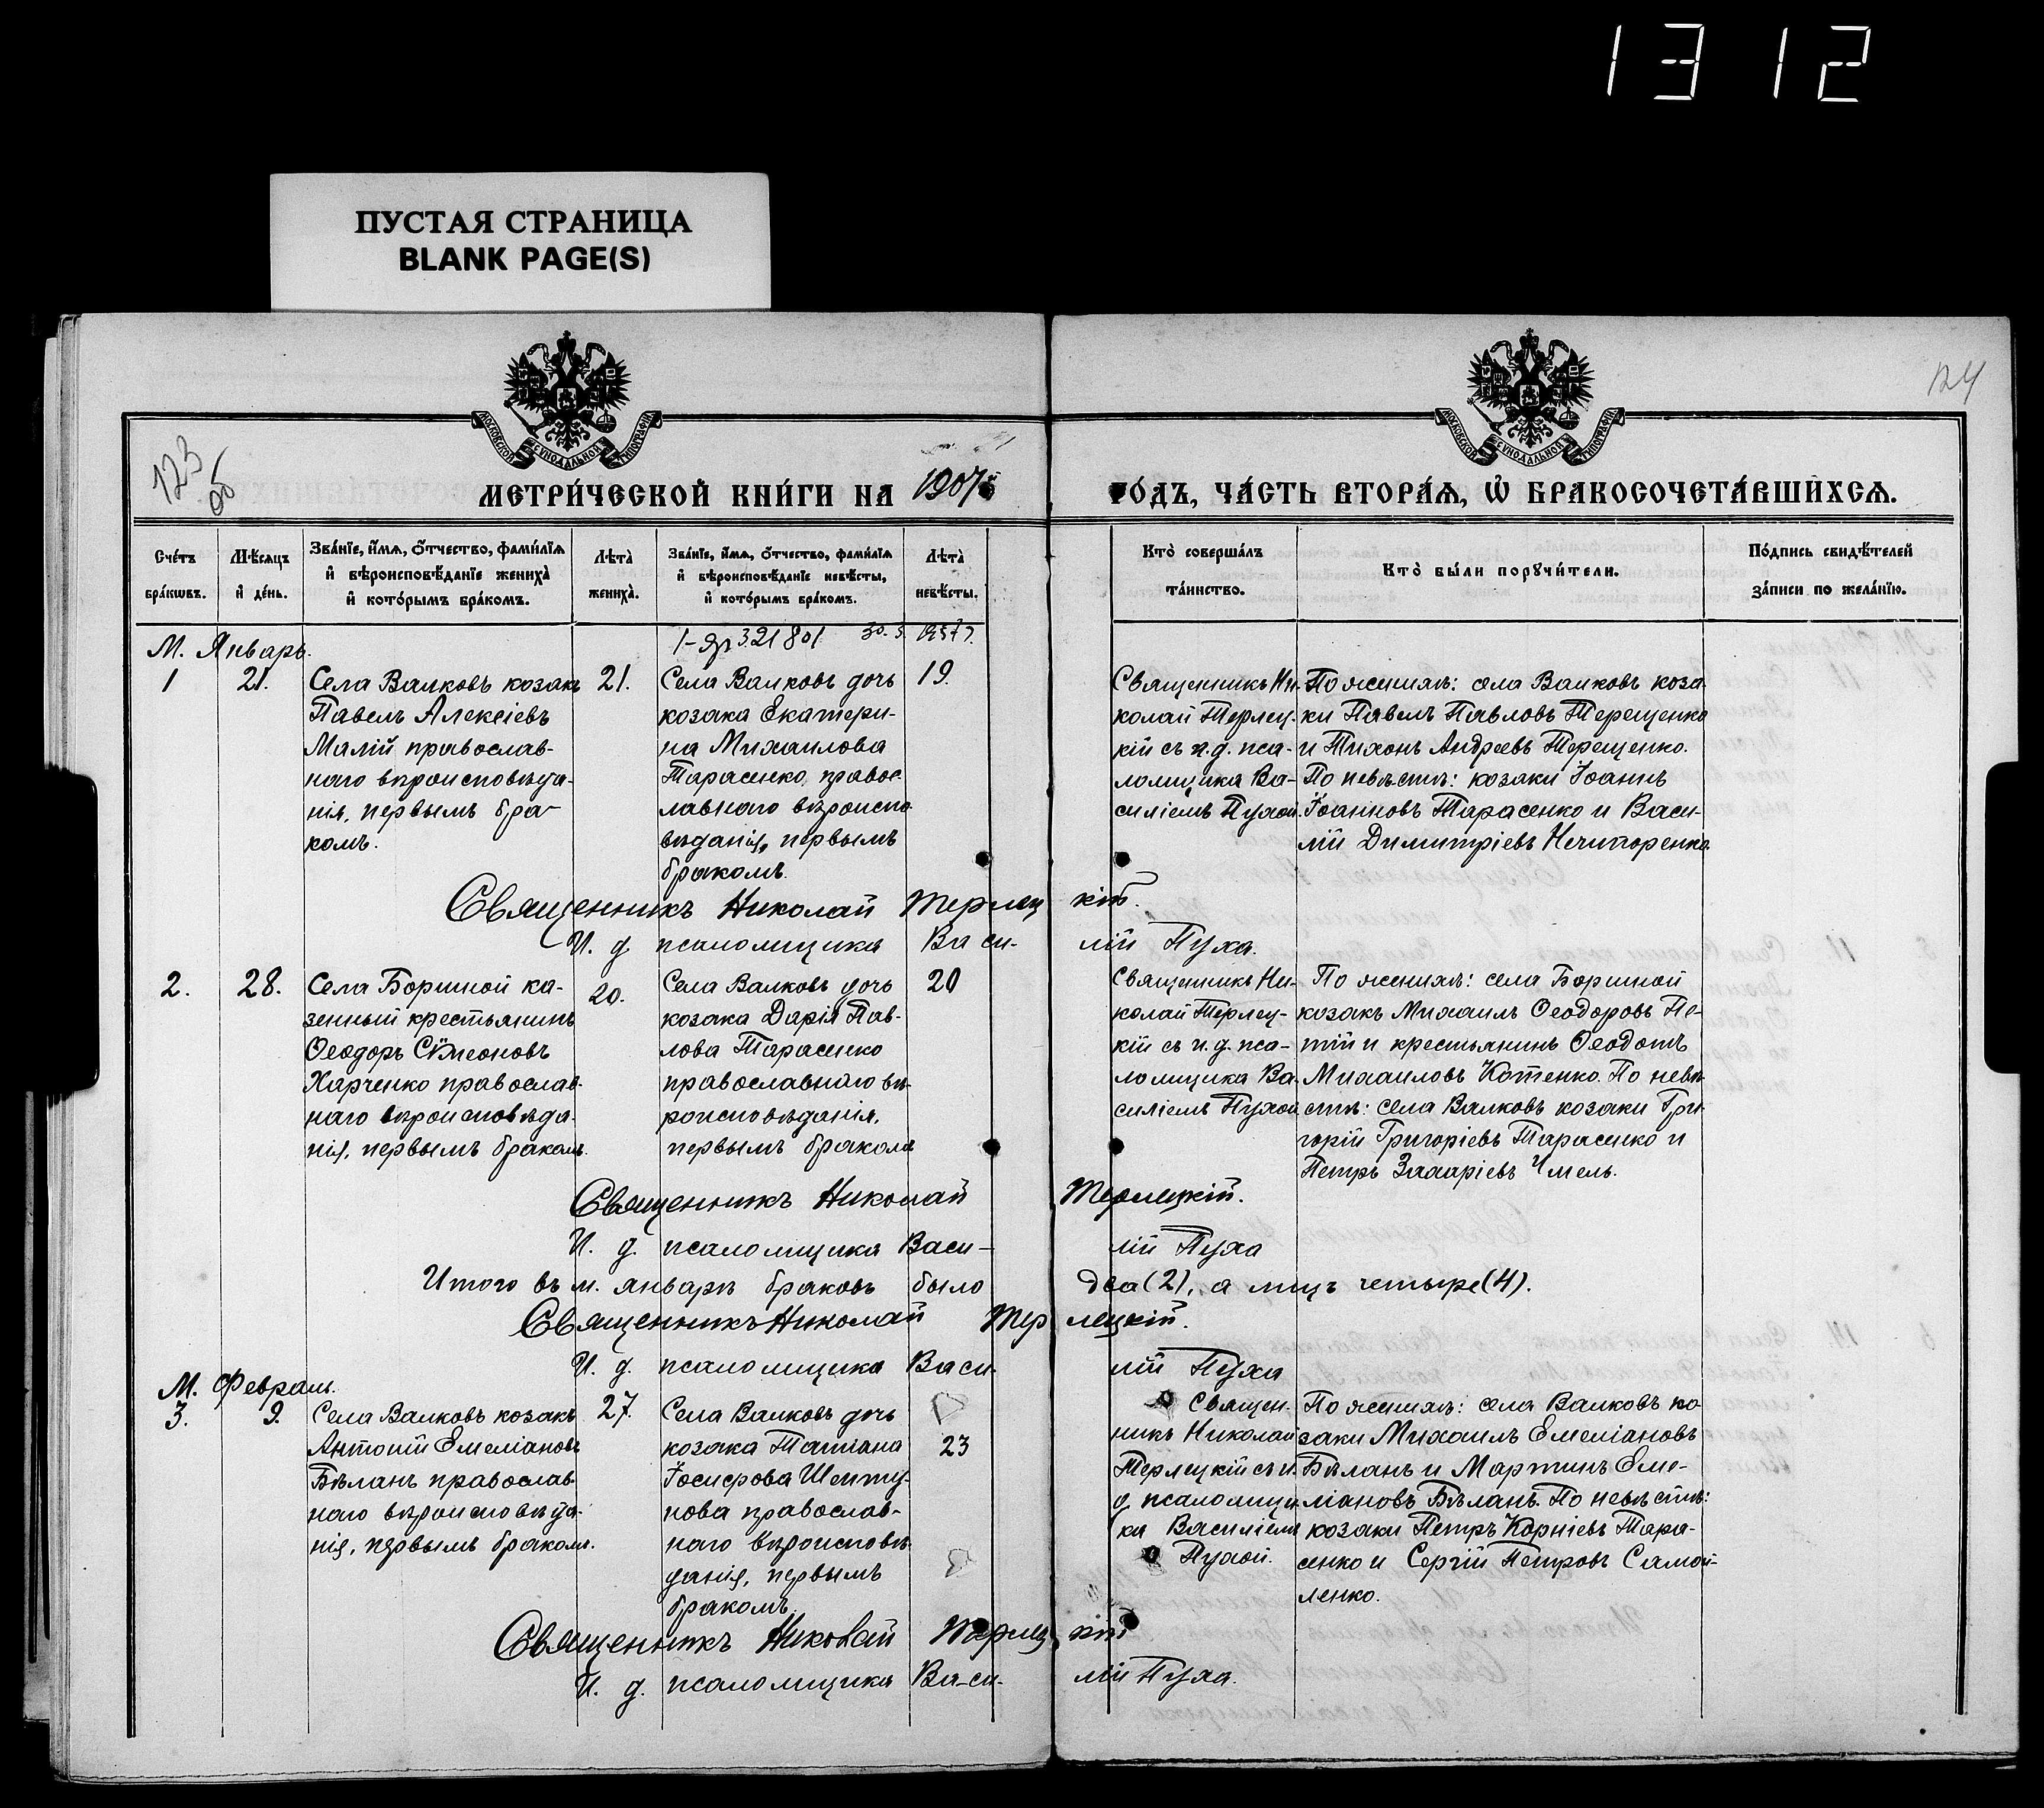 1312
ПУСТАЯ СТРАНИЦА
BLANK PAGE(S)
124
123 об
МОСКОВСКОЙ СУНОДАЛЬНОЙ ТИПОГРАФІИ
МОСКОВСКОЙ СУНОДАЛЬНОЙ ТИПОГРАФІИ
МЕТРИ́ЧЕСКОЙ КНИ́ГИ НА 1907
ГО́ДЪ, ЧА́СТЬ ВТОРА́Я, Ѡ҆ БРАКОСОЧЕТА́ВШИХСЯ.
Сче́тъ бра́кѡвъ.
Мѣ́сяцъ и҆ де́нь.
Зва́нїе, и҆́мя, ѻ҆́тчество, фами́лїя и҆ вѣроисповѣ́данїе жениха̀ и҆ кото́рымъ бра́комъ.
Лѣ́та̀ жениха̀.
Зва́нїе, и҆́мя, ѻ҆́тчество, фами́лїя и҆ вѣроисповѣ́данїе невѣ́сты, и҆ кото́рымъ бра́комъ.
Лѣ́та̀ невѣ́сты.
Кто̀ соверша́лъ та́инство.
Кто̀ бы́ли порꙋчи́тели.
По́дпись свидѣ́телей за́писи по жела́нїю.
М. Январь.
1
21.
Села Валковъ козакъ
Павелъ Алексіевъ
Малій православ-
наго вѣроисповѣда-
нія, первымъ бра-
комъ.
21.
Села Валковъ дочь
козака Екатери-
на Михаилова
Тарасенко, правос-
лавнаго вѣроиспо-
вѣданія, первымъ
бракомъ.
19.
Священникъ Ни-
колай Терлец-
кій съ и.д. пса-
ломщика Ва-
силіемъ Пухой.
По женихѣ: села Валковъ коза-
ки Павелъ Павловъ Терещенко
и Тихонъ Андреевъ Терещенко.
По невѣстѣ: козаки Іоаннъ
Іоанновъ Тарасенко и Васи-
лій Димитріевъ Нечипоренко
Священникъ Николай Терлецкій.
И. д. псаломщика Василій Пуха.
2.
28.
Села Боршной ка-
зенный крестьянинъ
Ѳеодоръ Сѵмеоновъ
Харченко православ-
наго вѣроисповѣда-
нія, первымъ бракомъ.
20.
Села Валковъ дочь
козака Дарія Пав-
лова Тарасенко
православнаго вѣ-
роисповѣданія,
первымъ бракомъ
20
Священникъ Ни-
колай Терлец-
кій съ и.д. пса-
ломщика Ва-
силіемъ Пухой
По женихѣ: села Боршной
козакъ Михаилъ Ѳеодоровъ
и крестьянинъ Ѳеодотъ
Михаиловъ Котенко. По невѣ-
стѣ: села Валковъ козаки Гри-
горій Григоріевъ Тарасенко и
Петръ Захаріевъ Чмель.
Священникъ Николай Терлецкій.
И. д. псаломщика Василій Пуха
Итого въ м. январѣ браковъ было два (2), а лицъ четыре (4).
Священникъ Николай Терлецкій.
И. д. псаломщика Василій Пуха
М. Февраль.
3.
9.
Села Валковъ козакъ
Антоній Емеліановъ
Бѣланъ православ-
наго вѣроисповѣда-
нія, первымъ бракомъ.
27.
Села Валковъ дочь
козака Татіана
Іосифова Шепту-
нова православ-
наго вѣроисповѣ-
данія, первымъ
бракомъ.
23
Священ-
никъ Николай
Терлецкій съ и.
д. псаломщи-
ка Василіемъ
Пухой.
По женихѣ: села Валковъ ко-
заки Михаилъ Емеліановъ
Бѣланъ и Мартинъ Еме-
ліановъ Бѣланъ. По невѣстѣ:
козаки Петръ Корніевъ Тара-
сенко и Сергій Петровъ Самой-
ленко.
Священникъ Николай Терлецкій
И. д. псаломщика Василій Пуха.